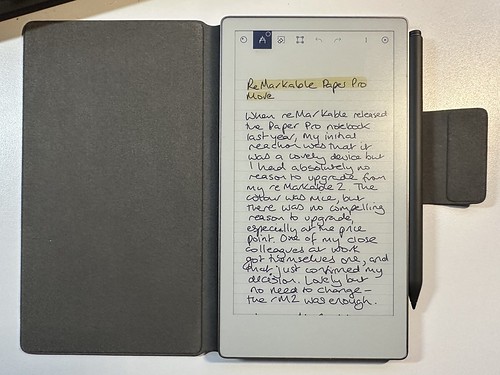 ReMarkable Paper Pro
Move
When reMarkable released
the Paper Pro notebook
last year, my initial
reaction was that it
was a lovely device but
I had absolutely no
reason to upgrade from
my reMarkable 2. The
colour was nice, but
there was no compelling
reason to upgrade,
especially at the price
point. One of my close
colleagues at work
got themselves one, and
that just confirmed my
decision. Lovely but
no need to change –
the rM2 was enough.